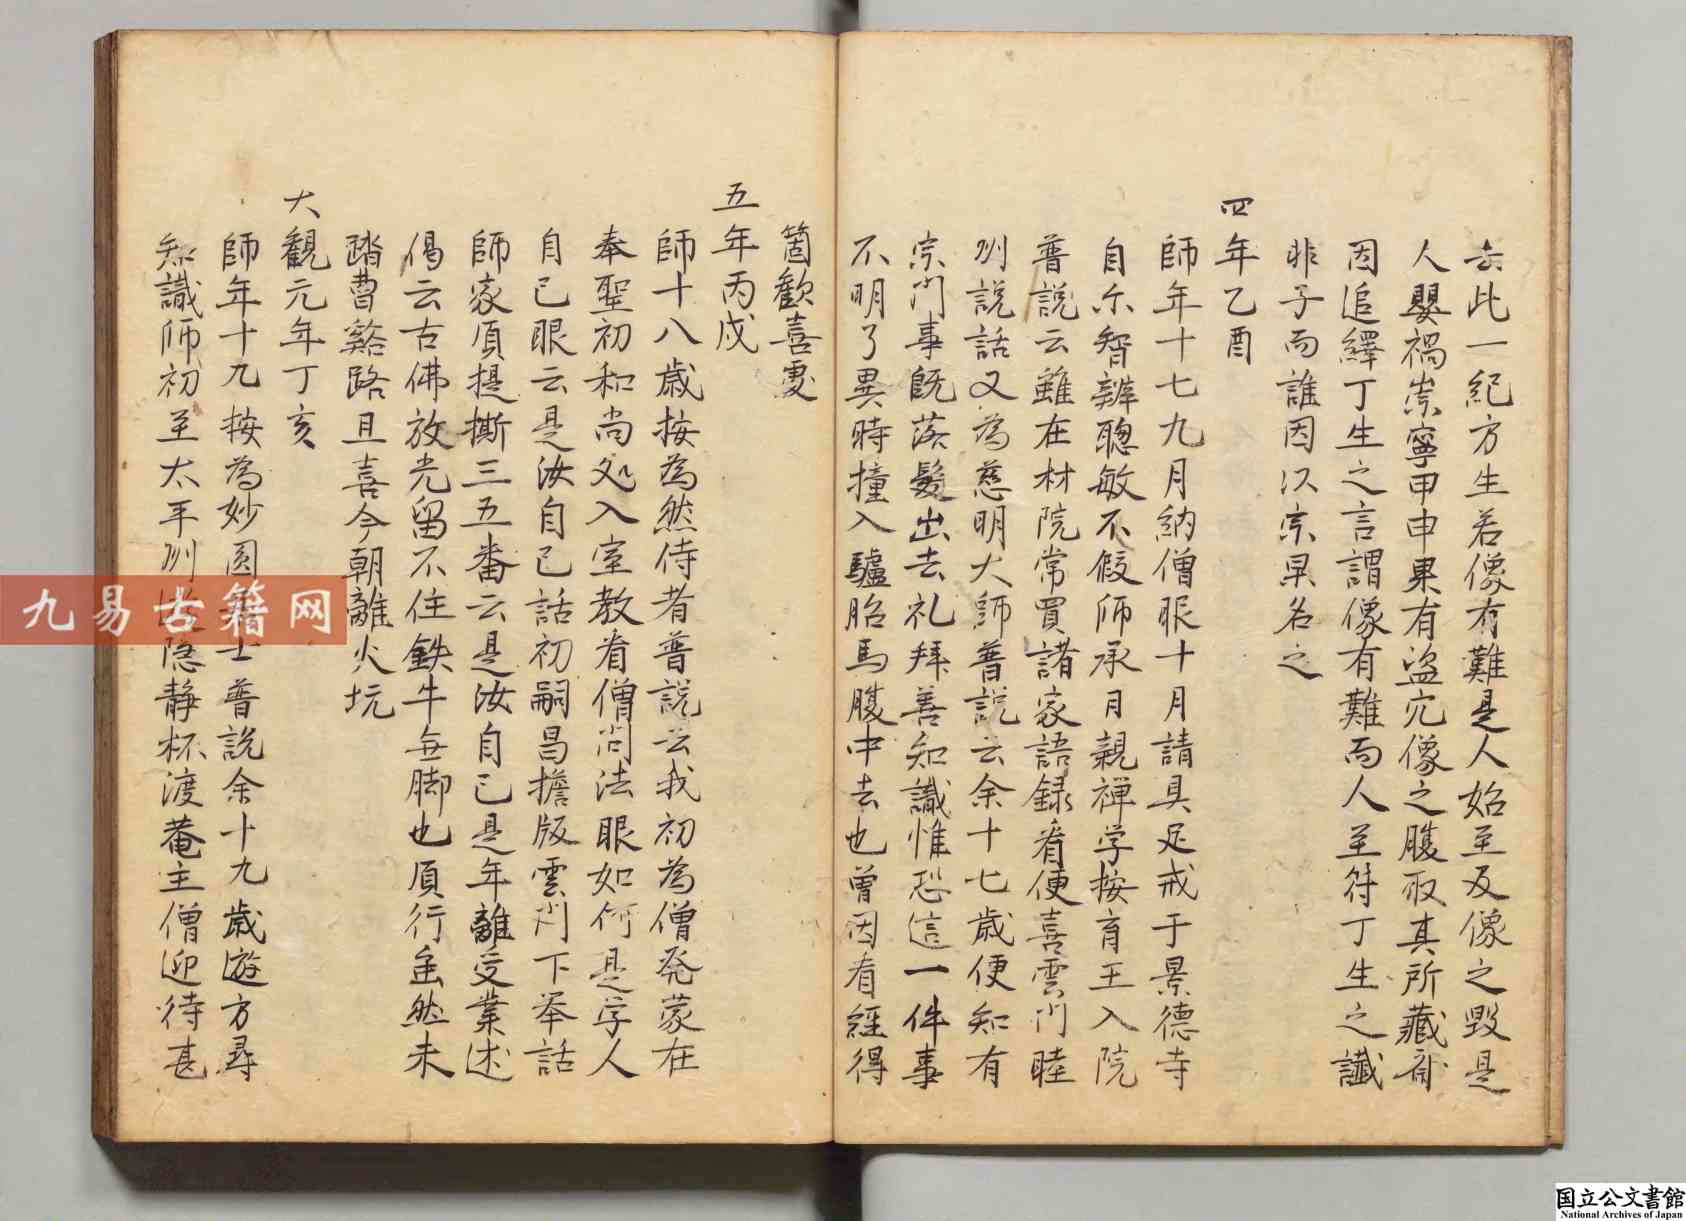 去此一紀方生若像有難是人始至及像之毀是
人嬰禍崇寧甲申果有盗穴像之腹取其所藏齋
因追繹丁生之言謂像有難而人至符丁生之讖
非子而誰因以宗杲名之
四年乙酉
師年十七九月納僧服十月請具足戒于景德寺
自尓智辨聰敏不假師承月親禅学按育王入院
普説云雖在村院常買諸家語録看便喜雲門睦
州説話又為慈明大師普説云余十七歳便知有
宗門事既落髮出去礼拜善知識惟恐這一件事
不明了異時撞入驢胎馬腹中去也曽因看経得
箇歓喜處
五年丙戌
師十八歳按為然侍者普説云我初為僧発蒙在
奉聖初和尚処入室教看僧問法眼如何是学人
自己眼云是汝自己話初嗣昌擔版雲門下挙話
師家須提撕三五番云是汝自己是年離受業述
偈云古佛放光留不住鉄牛無脚也須行虽然未
踏曹谿路且喜今朝離火坑
大觀元年丁亥
師年十九按為妙圓士普説余十九歳遊方尋
知識師初至太平州隐静杯渡菴主僧迎待甚
九易古籍网
国立公文書館
National Archives of Japan